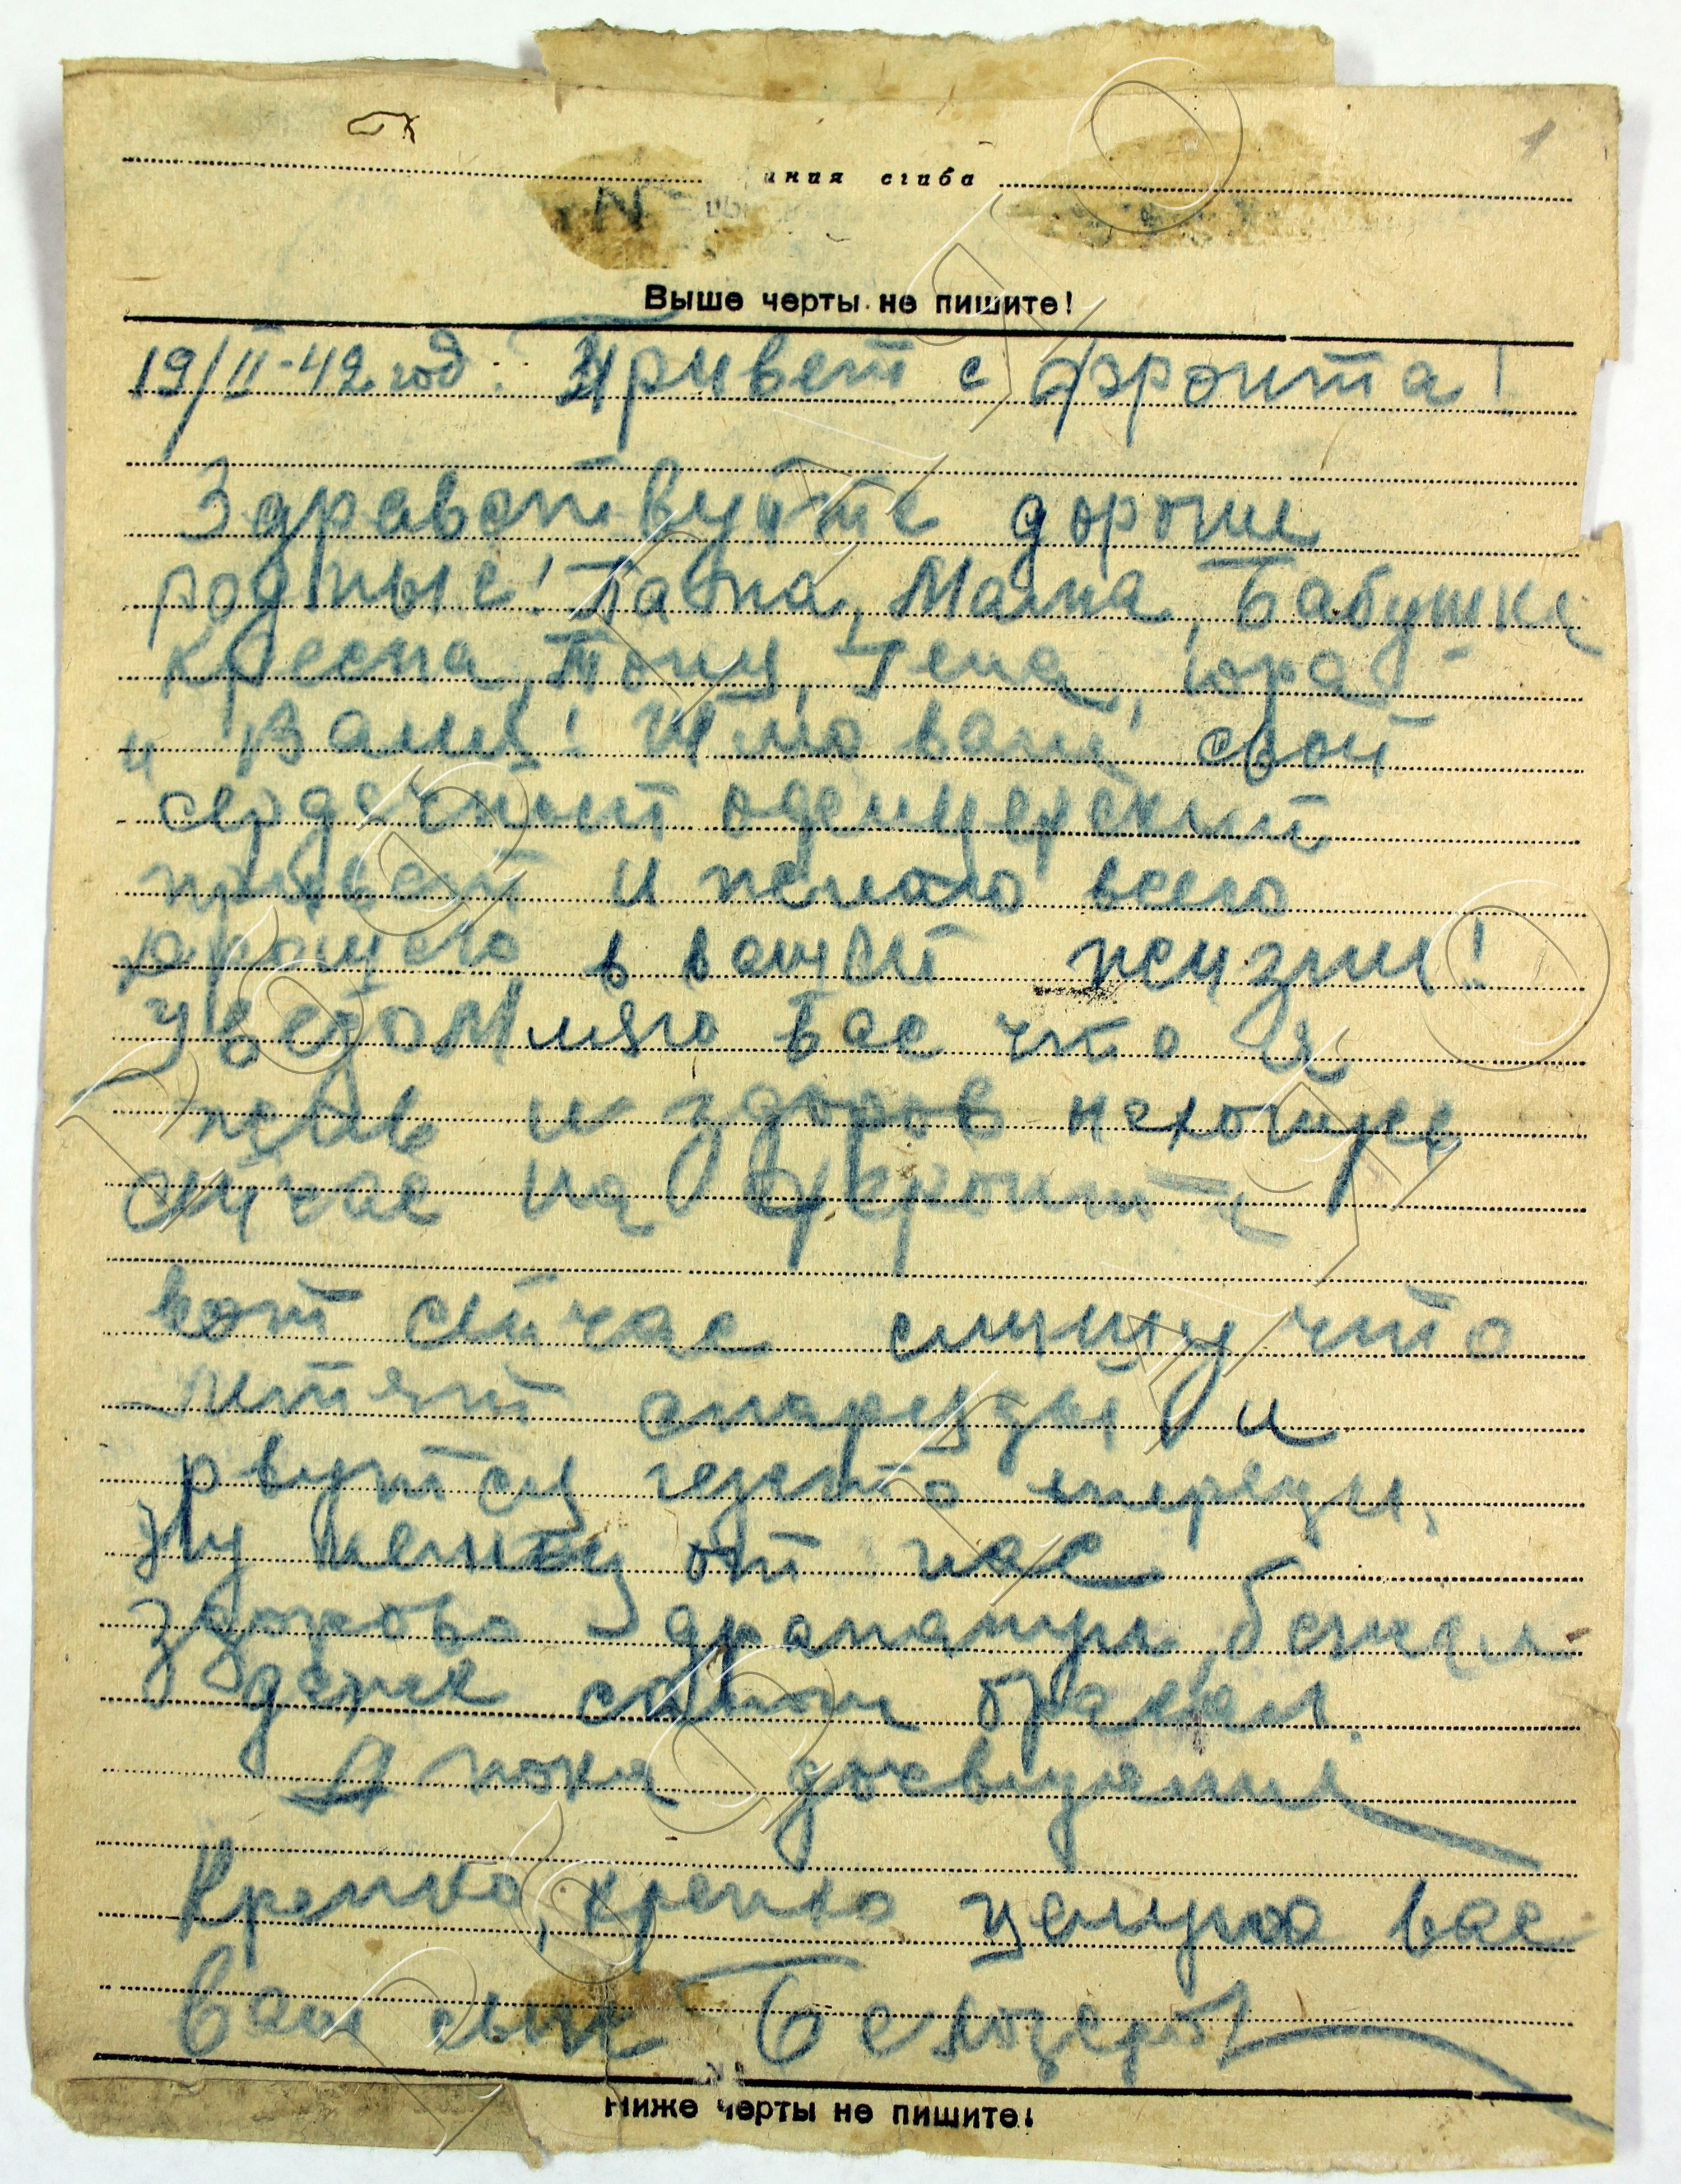 1
иния сгиба
N
Выше черты не пишите!
19/II-42 год. Привет с фронта!
Здравствуйте дорогие
родные! Папа, Мама, Бабушка
Кресна, Тоня, Гена, Юра
и Валя! Шлю вам свой
сердечный
привет и желаю всего
хорошего в вашей жизни!
Уведомляю вас что я
жив и здоров нахожусь
сичас на фронте
вот сичас слышу что
литят снаряды и
рвутся гезето впереди,
Ну немец от нас
здорово драпанул, бежал
даже сапоги бросал.
А пока досвидания
Крепко, крепко целую вас
ваш сын Белозеров
Ниже черты не пишите!